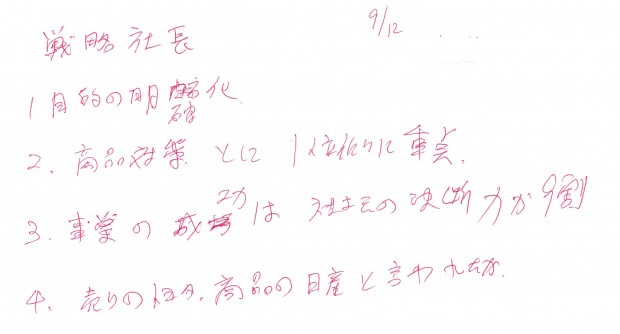 9/12
戦略社長
1 目的の明確化
2. 商品対策 とに 1位作りに重点.
3. 事業の成功は 社長の決断力が9割
4. 売りのトヨタ、商品の日産と言われたが.